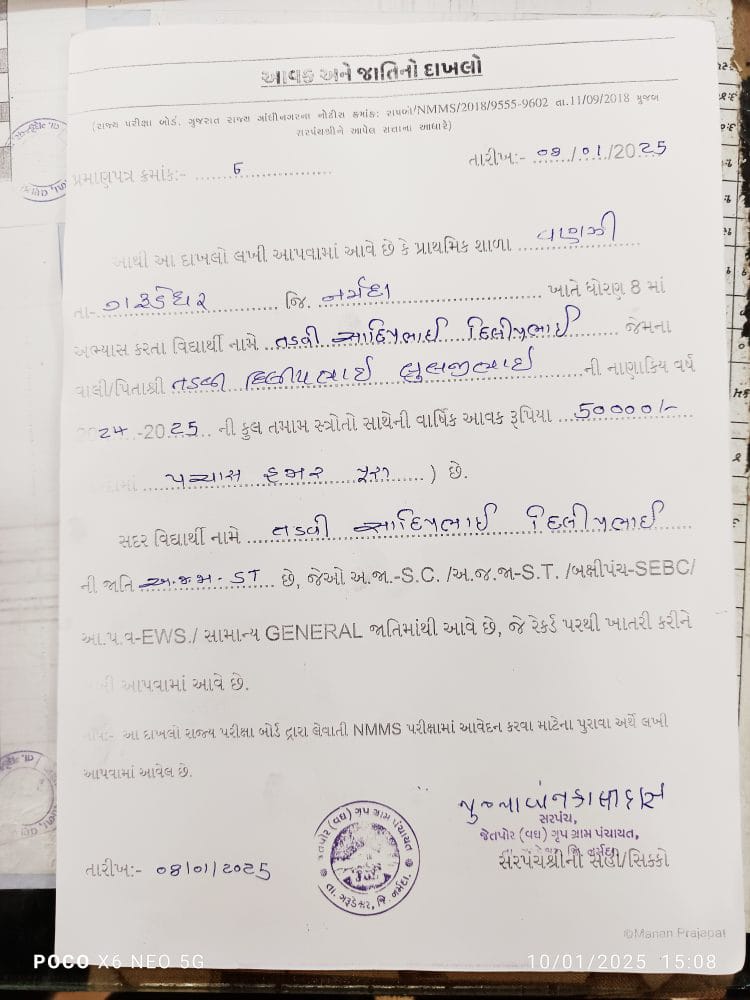 આવક અને જાતિનો દાખલો
(રાજ્ય પરીક્ષા બોર્ડ, ગુજરાત રાજ્ય ગાંધીનગરના નોટીસ ક્રમાંક: રાપબો/NMMS/2018/9555-9602 તા.11/09/2018 મુજબ
સરપંચશ્રીને આપેલ સત્તાના આધારે)
તારીખ:- 08/01/2025
પ્રમાણપત્ર ક્રમાંક:-
આથી આ દાખલો લખી આપવામાં આવે છે કે પ્રાથમિક શાળા
તા- ગરૂડેશ્વર જિ. નર્મદા ખાતે ધોરણ 8 માં
અભ્યાસ કરતા વિદ્યાર્થી નામે તડવી દિલીપભાઈ જેમના
વાલી/પિતાશ્રી તડવી દિલીપભાઈ ની નાણાકિય વર્ષ
2024-2025 ની કુલ તમામ સ્ત્રોતો સાથેની વાર્ષિક આવક રૂપિયા 50000/-
પચ્ચાસ હજાર પુરા ) છે.
સદર વિદ્યાર્થી નામે તડવી દિલીપભાઈ
ની જાતિ અ.જ.જા - ST છે, જેઓ અ.જા.-S.C. /અ.જ.જા-S.T. /બક્ષીપંચ-SEBC/
આ.પ.વ-EWS./ સામાન્ય GENERAL જાતિમાંથી આવે છે, જે રેકર્ડ પરથી ખાતરી કરીને
આપવામાં આવે છે.
આ દાખલો રાજ્ય પરીક્ષા બોર્ડ દ્વારા લેવાતી NMMS પરીક્ષામાં આવેદન કરવા માટેના પુરાવા અર્થે લખી
આપવામાં આવેલ છે.
સરપંચ,
જેતપોર (વઘ) ગૃપ ગ્રામ પંચાયત,
સરપંચશ્રીની સહી/સિક્કો
જેતપોર (વઘ) ગૃપ ગ્રામ પંચાયત
તા. ગરૂડેશ્વર, જિ. નર્મદા.
તારીખ:- 08/01/2025
©Manan Prajapat
POCO X6 NEO 5G
10/01/2025 15:08